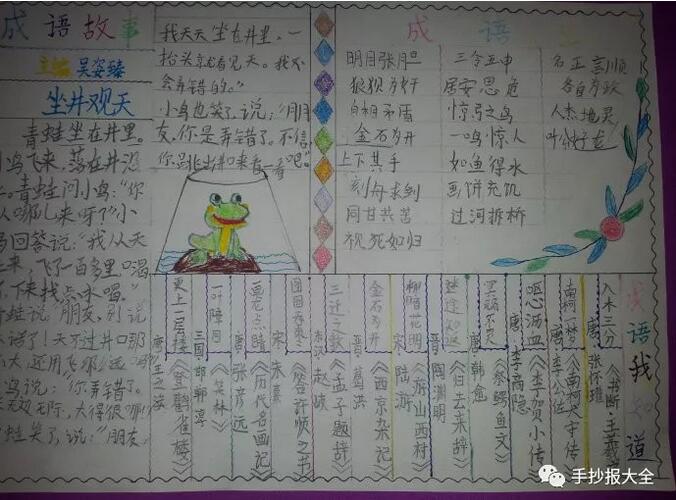 成语故事
主编 吴姿臻
坐井观天
青蛙坐在井里。
小鸟飞来,落在井沿
上。青蛙问小鸟:“你
从哪儿来呀?”小
鸟回答说:“我从天
上来,飞了一百多里,口渴
了,下来找点水喝。”
青蛙说:“朋友,别说
大话了!天不过井口那
么大,还用飞那么远吗?”
小鸟说:“你弄错了。
天无边无际,大得很哪!”
青蛙笑了,说:“朋友,
我天天坐在井里,一
抬头就看见天。我不
会弄错的。”
小鸟也笑了,说:“朋
友,你是弄错了。不信,
你跳出井口来看一看吧。”
成语
明目张胆 三令五申 名正言顺
狼狈为奸 居安思危 各自为政
自相矛盾 惊弓之鸟 人杰地灵
金石为开 一鸣惊人 叶公好龙
上下其手 如鱼得水
刻舟求剑 画饼充饥
同甘共苦 过河拆桥
视死如归
成语我知道
入木三分
唐·张怀瓘《书断·王羲之》
南柯一梦
唐·李公佐《南柯太守传》
呕心沥血
唐·李商隐《李贺小传》
唐·韩愈《祭鳄鱼文》
迷途知返
晋·陶渊明《归去来辞》
柳暗花明
宋·陆游《游山西村》
金石为开
晋·葛洪《西京杂记》
三迁之教
东汉·赵岐《孟子题辞》
宋·朱熹《答许顺之书》
画龙点睛
唐·张彦远《历代名画记》
一叶障目
三国·邯郸淳《笑林》
更上一层楼
唐·王之涣《登鹳雀楼》
手抄报大全